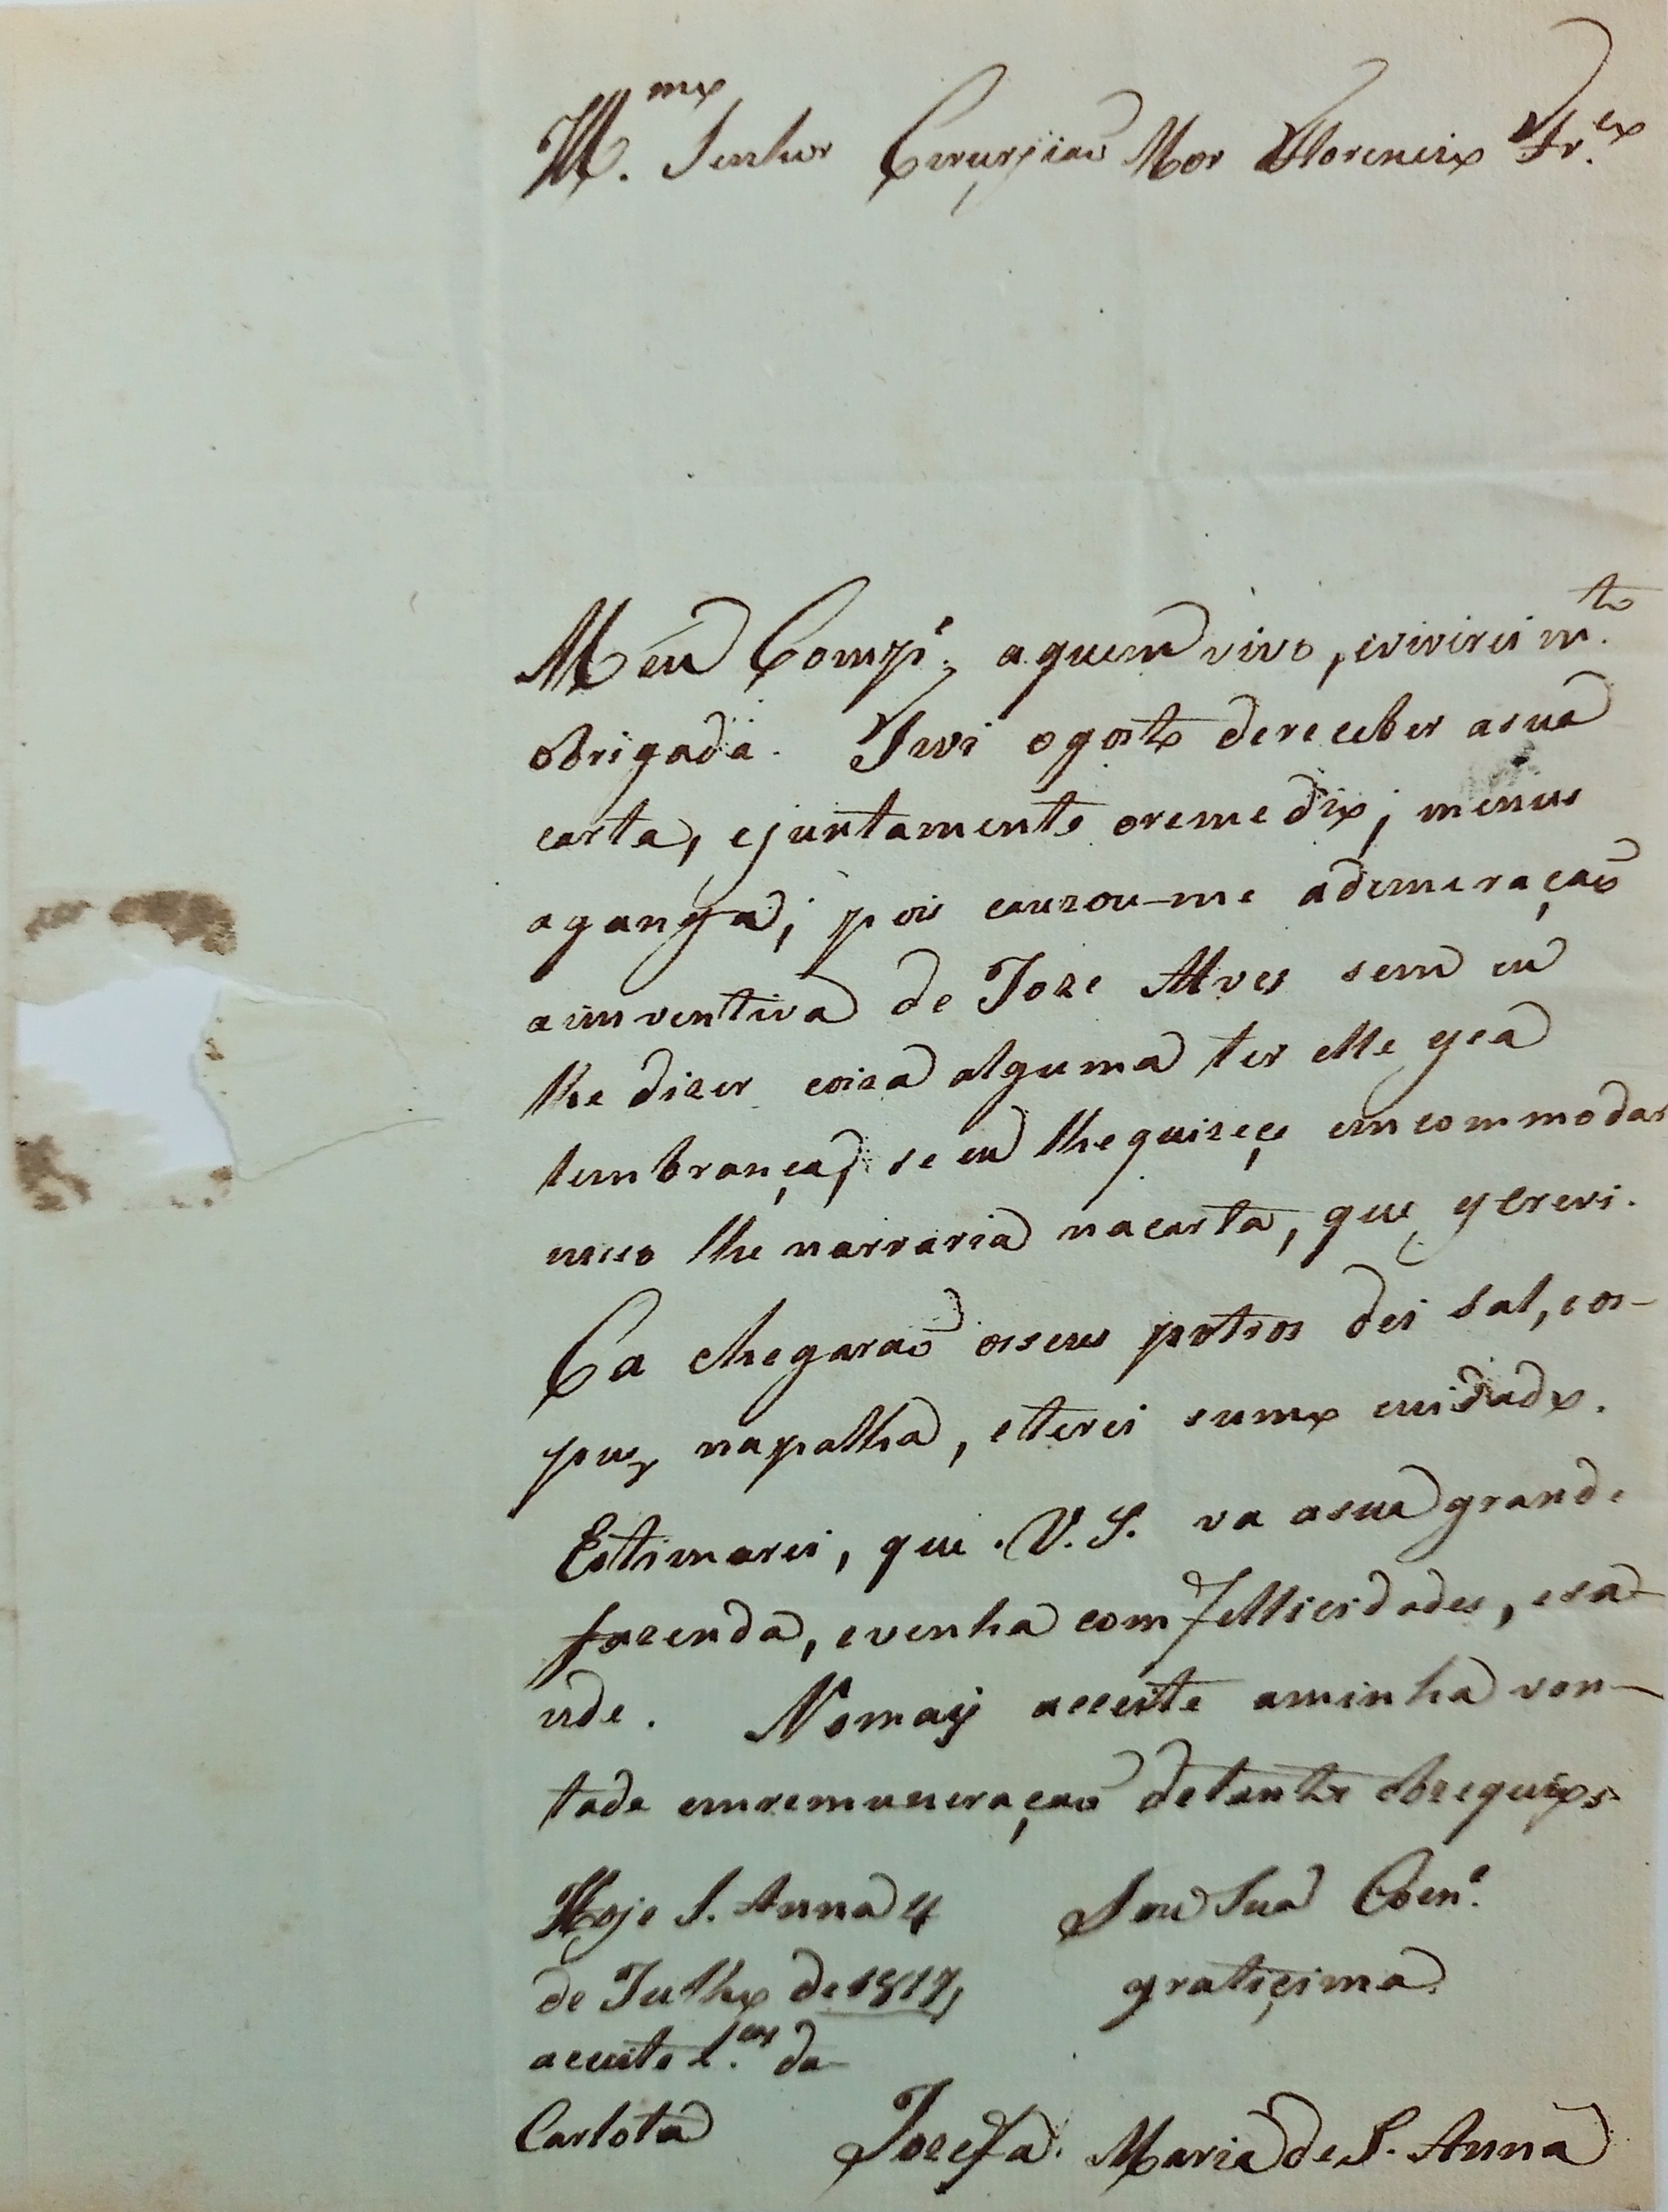 Ill.mo Senhor Cirurjiaõ Mor Florencio Fr.co
Meu Comp.e, a quem vivo, evivirei m.to
obrigada. Tivi ogosto dereceber asua
carta, ejuntamente oremedio; menus
aganga; pois cauzou-me adimiraçaõ
ainventiva de Joze Alves sem eu
lhe dizer coiza alguma ter elle
lembrança, se eu lhequizeçe emcommodar
lhe narraria nacarta, que
Ca chegaraõ osseus potros dei sal, eos-
puz napalha, eterei sumo cuidado.
Estimarei, que V.S. va asua grande
fazenda, evenha com fellicidades, esa-
ude. Nomais acceite aminha von-
tade emremuneraçaõ detanto obzequios
Hoje S. Anna 4 Sou Sua
de Julho de 1817, gratiçima
aceite l.cas da
Carlota Jozefa Maria de S. Anna